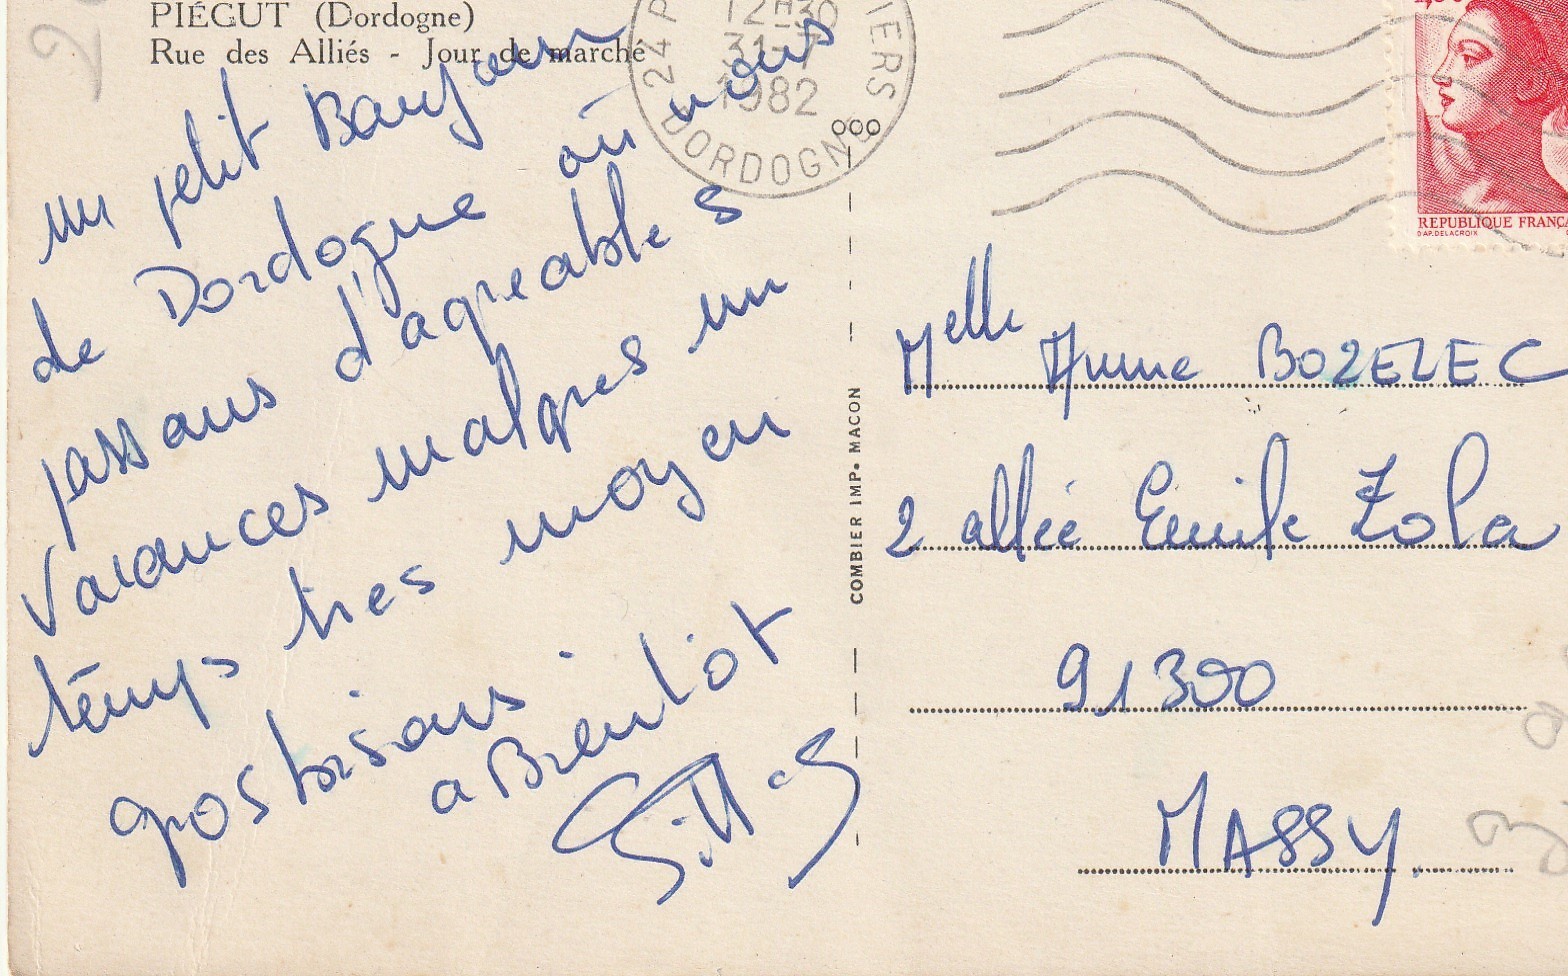 PIÉGUT (Dordogne)
Rue des Alliés - Jour de marché
un petit Bonjour
de Dordogne où nous
passons d'agreables
vacances malgres un
temps tres moyen
gros bisous
a Bientôt
Gilles
12H30
31-7
1982
24 P IERS
DORDOGNE
REPUBLIQUE FRANÇA
D'AP. DELACROIX
COMBIER IMP. MACON
Melle Anne BOZELEC
2 allée Emile Zola
91300
MASSY.